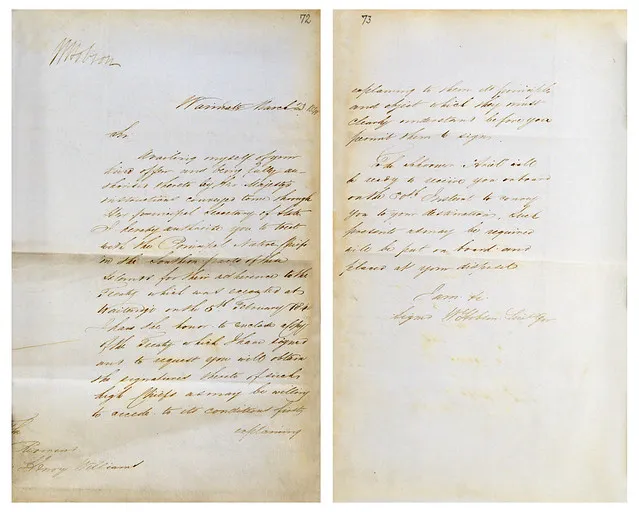 72
W Hobson
Waimate March 23 1840
Sir
Availing myself of your
kind offer and being fully au-
thorised thereto by Her Majesty's
instructions conveyed to me through
Her principal Secretary of State
I hereby authorize you to treat
with the Principal Native Chiefs
in the Southern parts of these
Islands for their adherence to the
Treaty which was executed at
Waitangi on the 6th February 1840
I have the honor to enclose a copy
of the Treaty which I have signed
and to request you will obtain
the signatures thereto of such
high Chiefs as may be willing
to accede to its conditions first
explaining
The
Reverend
Henry Williams
73
explaining to them its principle
and object which they must
clearly understand before you
permit them to sign.
The Schooner Ariel will
be ready to receive you onboard
on the 30th Instant to convey
you to your destination. Such
presents as may be required
will be put on board and
placed at your disposal
I am &c
Signed W Hobson Lieut Gov